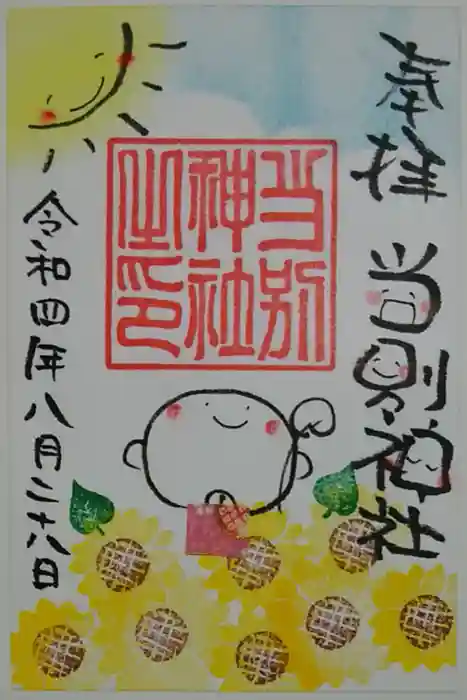 奉拝
当別神社
当別
神社
之印
令和四年八月二十八日